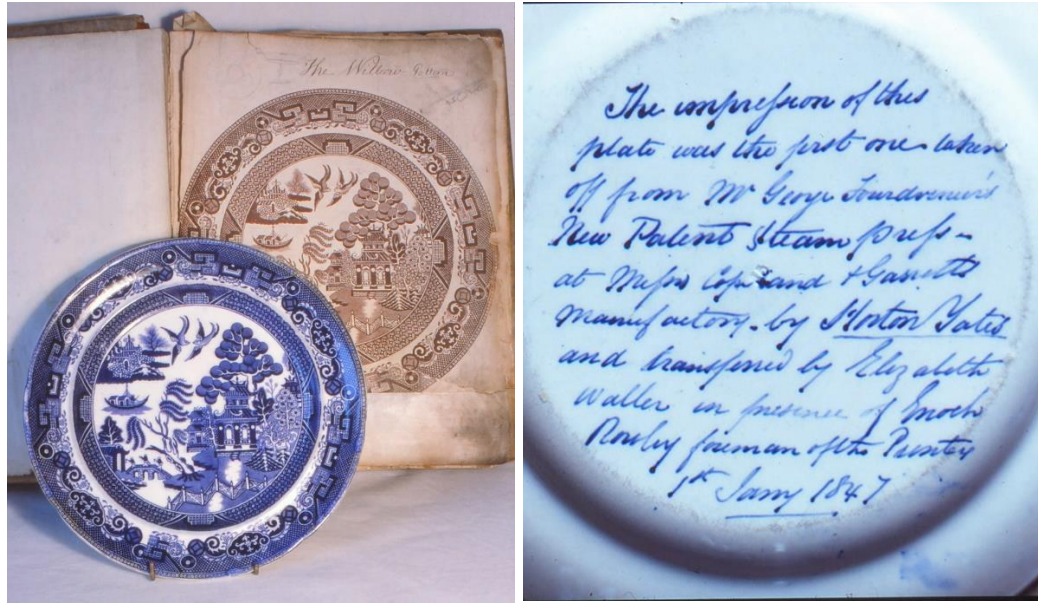 The Willow Pattern
The impression of this
plate was the first one taken
off from Mr George Fourdrinier's
New Patent Steam press -
at Messrs Copeland & Garrett's
manufactory - by Horton Yates
and transferred by Elizabeth
Waller in presence of Enoch
Rowley foreman of the Printers
1st Jany 1847